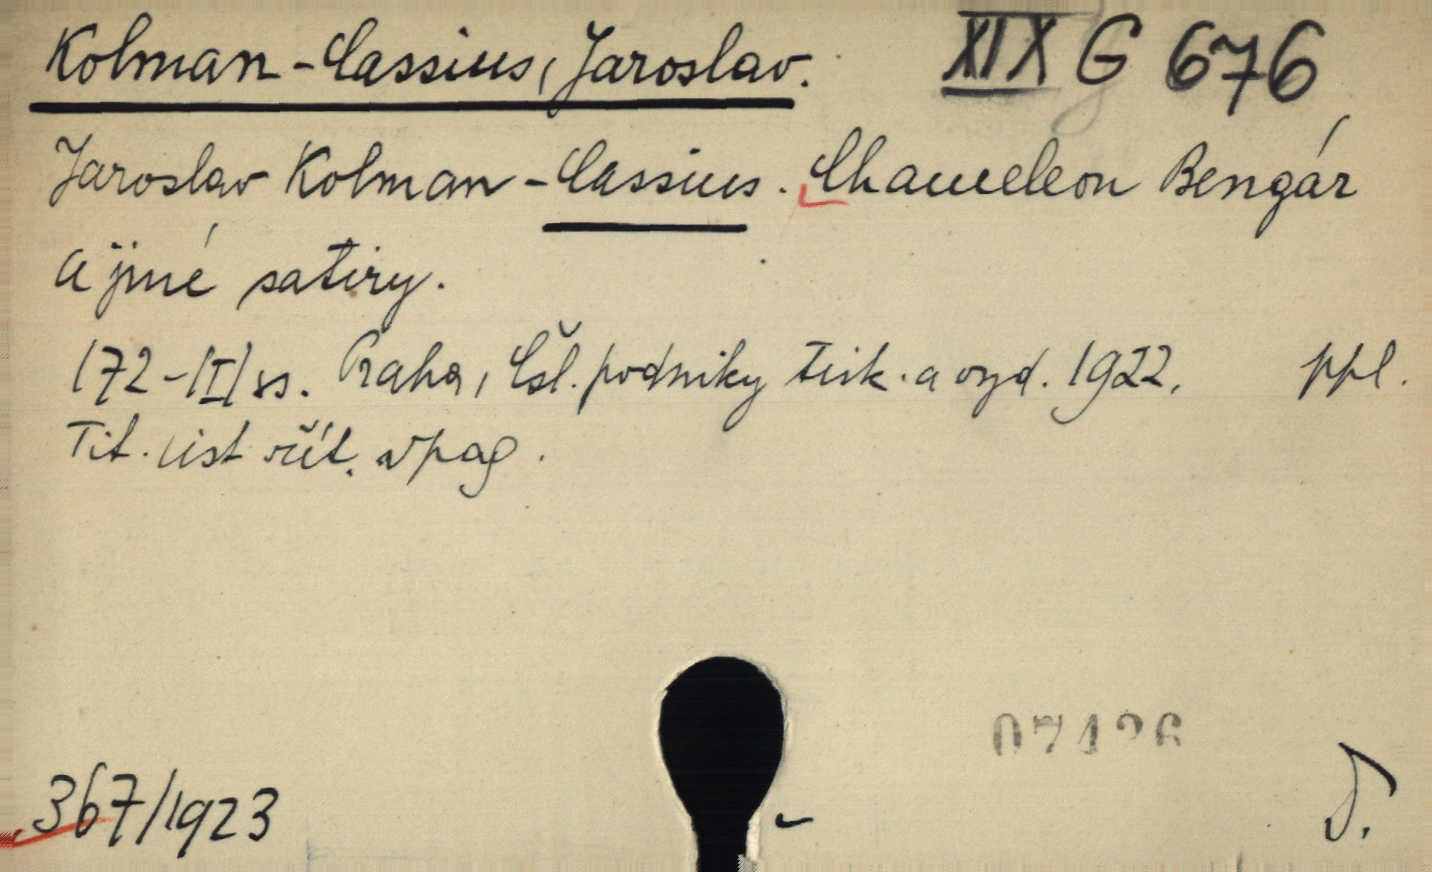 Kolman-Cassius, Jaroslav. XIX G 676
Jaroslav Kolman-Cassius. Chameleon Bengár
a jiné satiry.
172-|I| ss. Praha, Čsl. podniky tisk. a vyd. 1922. ppl.
Tit. list včít. v pag.
07426
367/1923